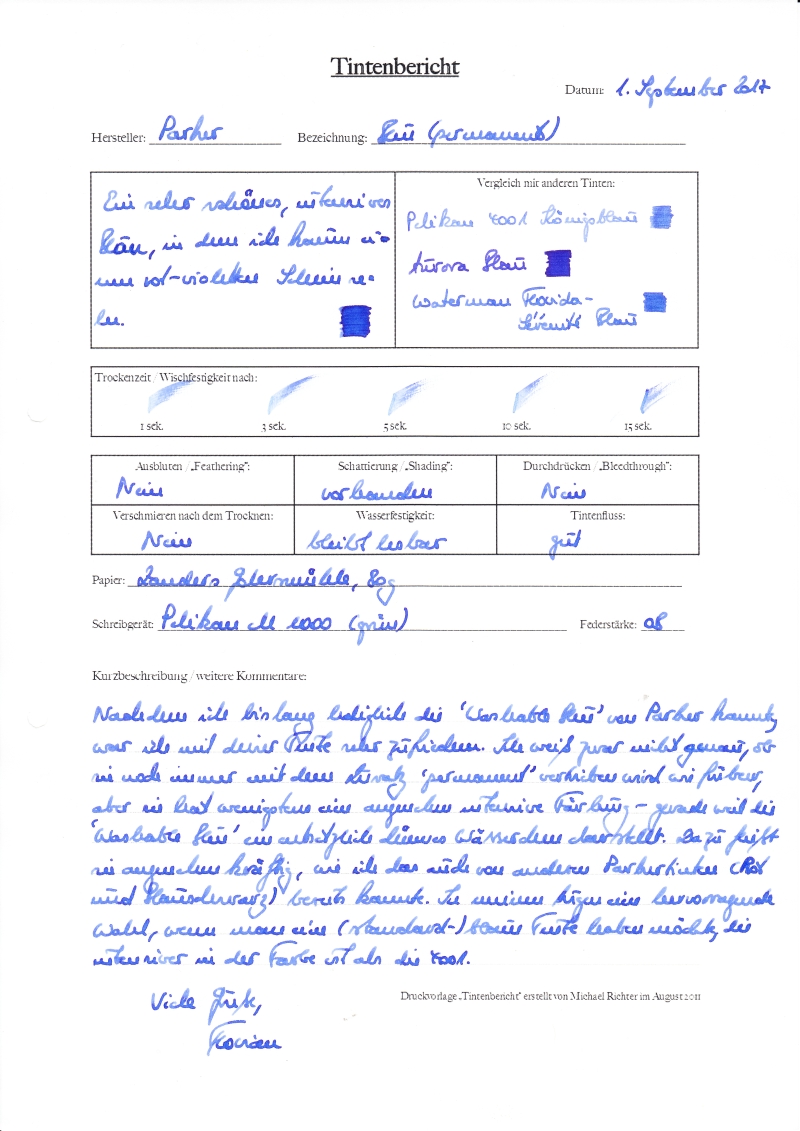 Tintenbericht
Datum: 1. September 2017
Hersteller: Parker Bezeichnung: Blau (permanent)
Ein sehr schönes, intensives
Blau, in dem ich kaum ei-
nen rot-violetten Schein se-
he.
Vergleich mit anderen Tinten:
Pelikan 4001 Königsblau
Aurora Blau
Waterman Florida-
Sérénité Blau
Trockenzeit / Wischfestigkeit nach:
1 sek. 3 sek. 5 sek. 10 sek. 15 sek.
Ausbluten / „Feathering": Schattierung / „Shading": Durchdrücken / „Bleedthrough":
Nein vorhanden Nein
Verschmieren nach dem Trocknen: Wasserfestigkeit: Tintenfluss:
Nein bleibt lesbar gut
Papier: Zanders Gohrsmühle, 80g
Schreibgerät: Pelikan M 1000 (grün) Federstärke: OB
Kurzbeschreibung / weitere Kommentare:
Nachdem ich bislang lediglich die 'Washable Blue' von Parker kannte,
war ich mit dieser Tinte sehr zufrieden. Ich weiß zwar nicht genau, ob
sie noch immer mit dem Zusatz 'permanent' vertrieben wird wie früher,
aber sie hat wenigstens eine angenehm intensive Färbung – gerade weil die
'Washable Blue' ein entsetzlich dünnes Wässerchen darstellt. Dazu fließt
sie angenehm kräftig, wie ich das auch von anderen Parkertinten (Rot
und Blauschwarz) bereits kannte. In meinen Augen eine hervorragende
Wahl, wenn man eine (standard-) blaue Tinte haben möchte, die
intensiver in der Farbe ist als die 4001.
Viele Grüße,
Florian
Druckvorlage „Tintenbericht" erstellt von Michael Richter im August 2011